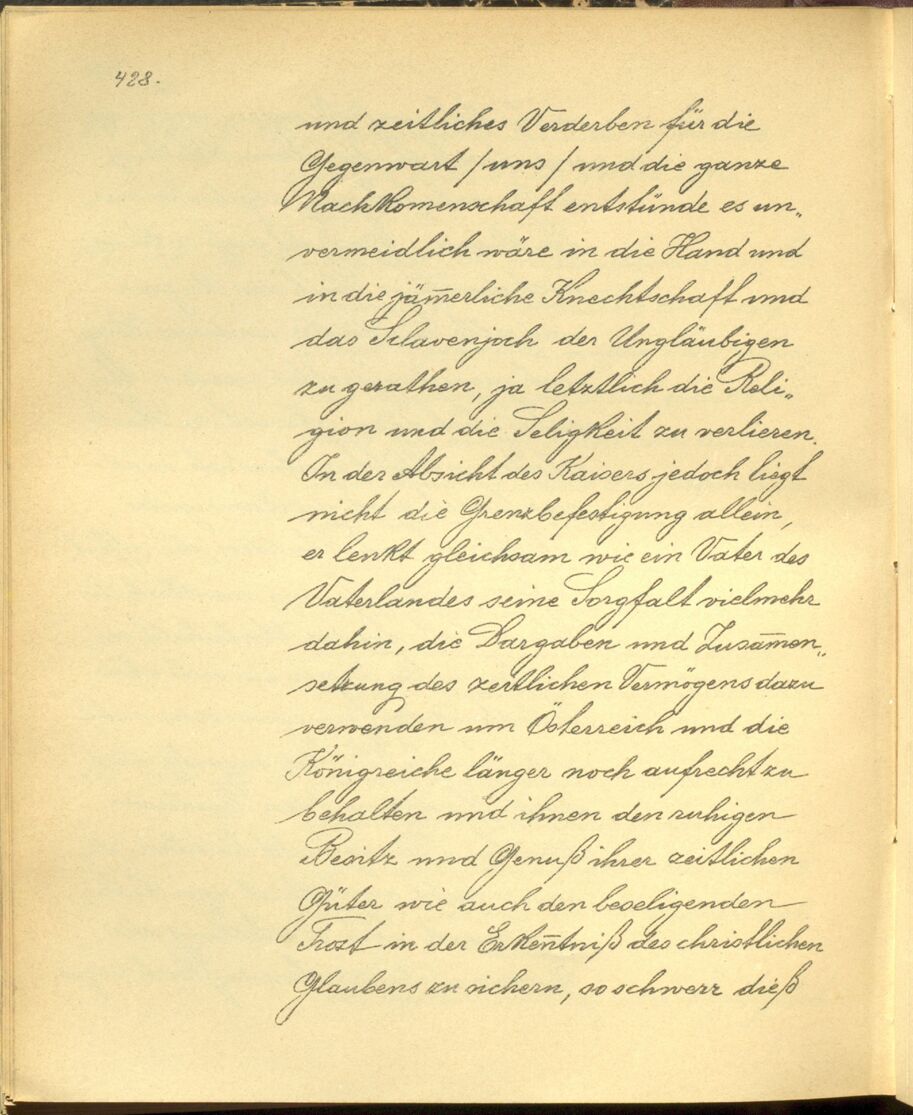 428.
und zeitliches Verderben für die
Gegenwart /uns/ und die ganze
Nachkom̅enschaft entstünde es un„
vermeidlich wäre in die Hand und
in die jäm̅erliche Knechtschaft und
das Sclavenjoch der Ungläubigen
zu gerathen, ja letztlich die Reli„
gion und die Seligkeit zu verlieren.
In der Absicht des Kaisers jedoch liegt
nicht die Grenzbefestigung allein,
er lenkt gleichsam wie ein Vater des
Vaterlandes seine Sorgfalt vielmehr
dahin, die Dargaben und Zusam̅en„
setzung des zeitlichen Vermögens dazu
verwenden um Österreich und die
Königreiche länger noch aufrecht zu
behalten und ihnen den ruhigen
Besitz und Genuß ihrer zeitlichen
Güter wie auch den beseligenden
Trost in der Erken̅tniß des christlichen
Glaubens zu sichern, so schwerr dieß